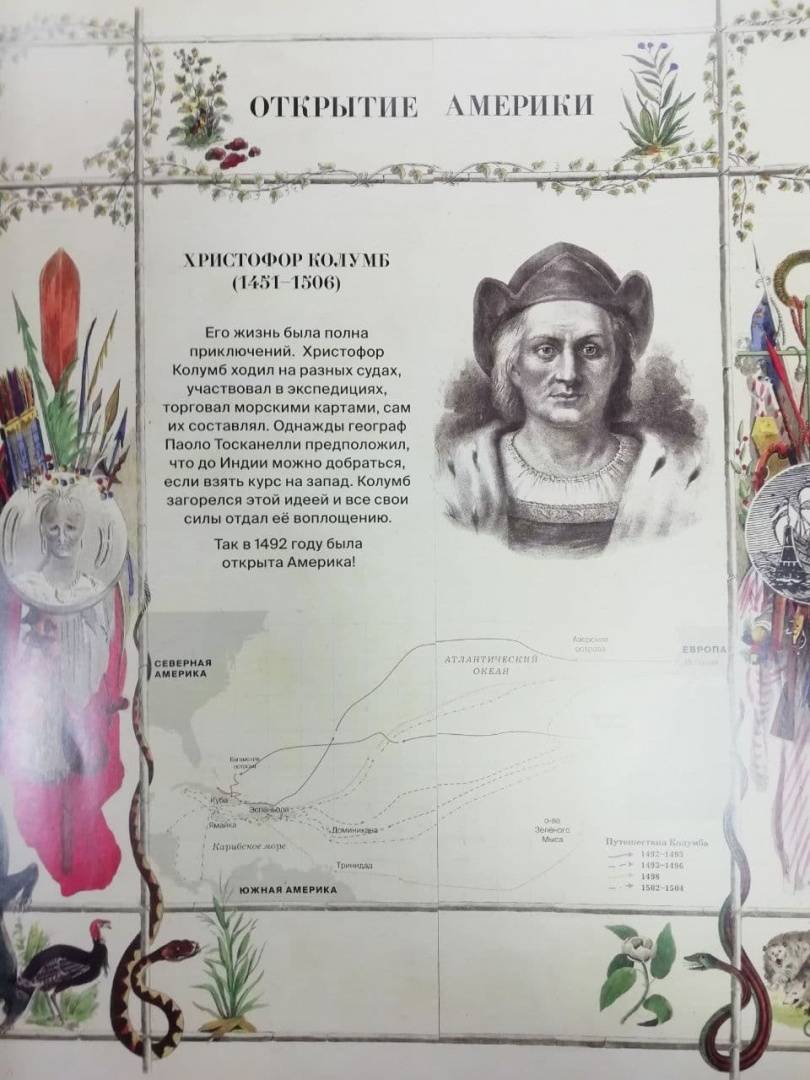 ОТКРЫТИЕ АМЕРИКИ
ХРИСТОФОР КОЛУМБ
(1451–1506)
Его жизнь была полна
приключений. Христофор
Колумб ходил на разных судах,
участвовал в экспедициях,
торговал морскими картами, сам
их составлял. Однажды географ
Паоло Тосканелли предположил,
что до Индии можно добраться,
если взять курс на запад. Колумб
загорелся этой идеей и все свои
силы отдал её воплощению.
Так в 1492 году была
открыта Америка!
СЕВЕРНАЯ
АМЕРИКА
АТЛАНТИЧЕСКИЙ
ОКЕАН
Азорские
острова
ЕВРОПА
Багамские
острова
Куба
Эспаньола
Ямайка
Доминикана
Карибское море
Тринидад
ЮЖНАЯ АМЕРИКА
о-ва
Зелёного
Мыса
Путешествия Колумба
1492–1493
1493–1496
1498
1502–1504